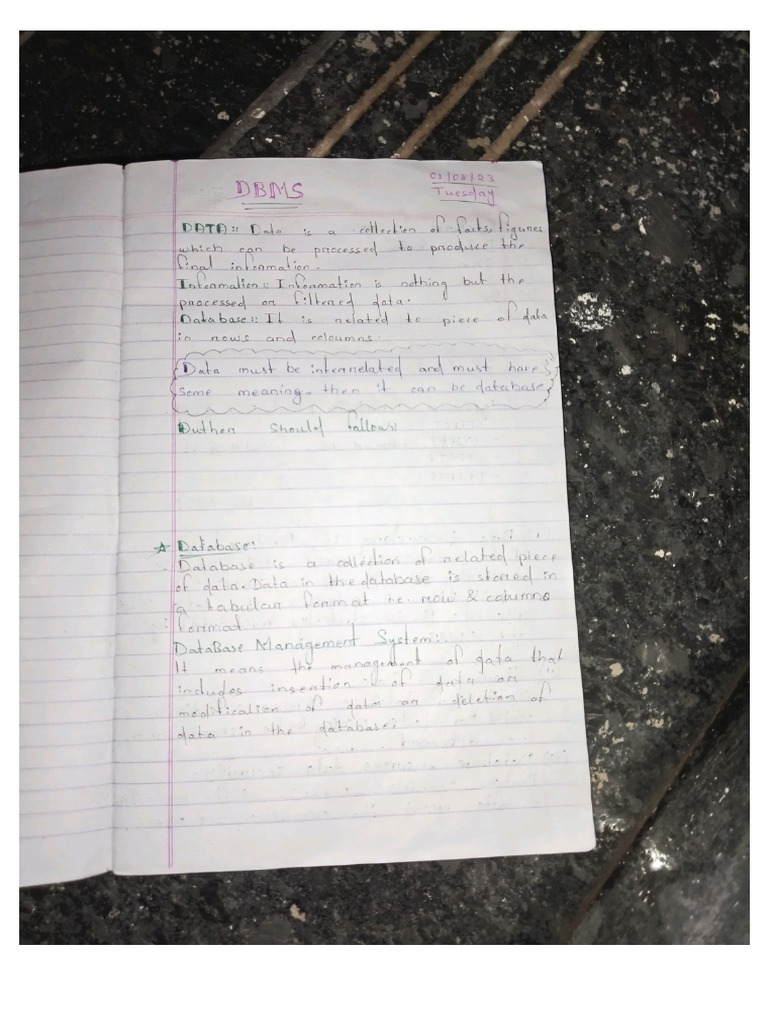 DBMS
01/08/23
Tuesday
DATA:: Data is a collection of facts, figures
which can be processed to produce the
final information.
Information:: Information is nothing but the
processed or filtered data.
Database:: It is related to piece of data
in rows and coloumns.
Data must be interrelated and must have
some meaning. then it can be database
should follow
Database:
Database is a collection of related piece
of data. Data in the database is stored in
a tabular format i.e. row & column
format.
DataBase Management System:
It means the management of data that
includes insertion of data or
modification of data or deletion of
data in the database.